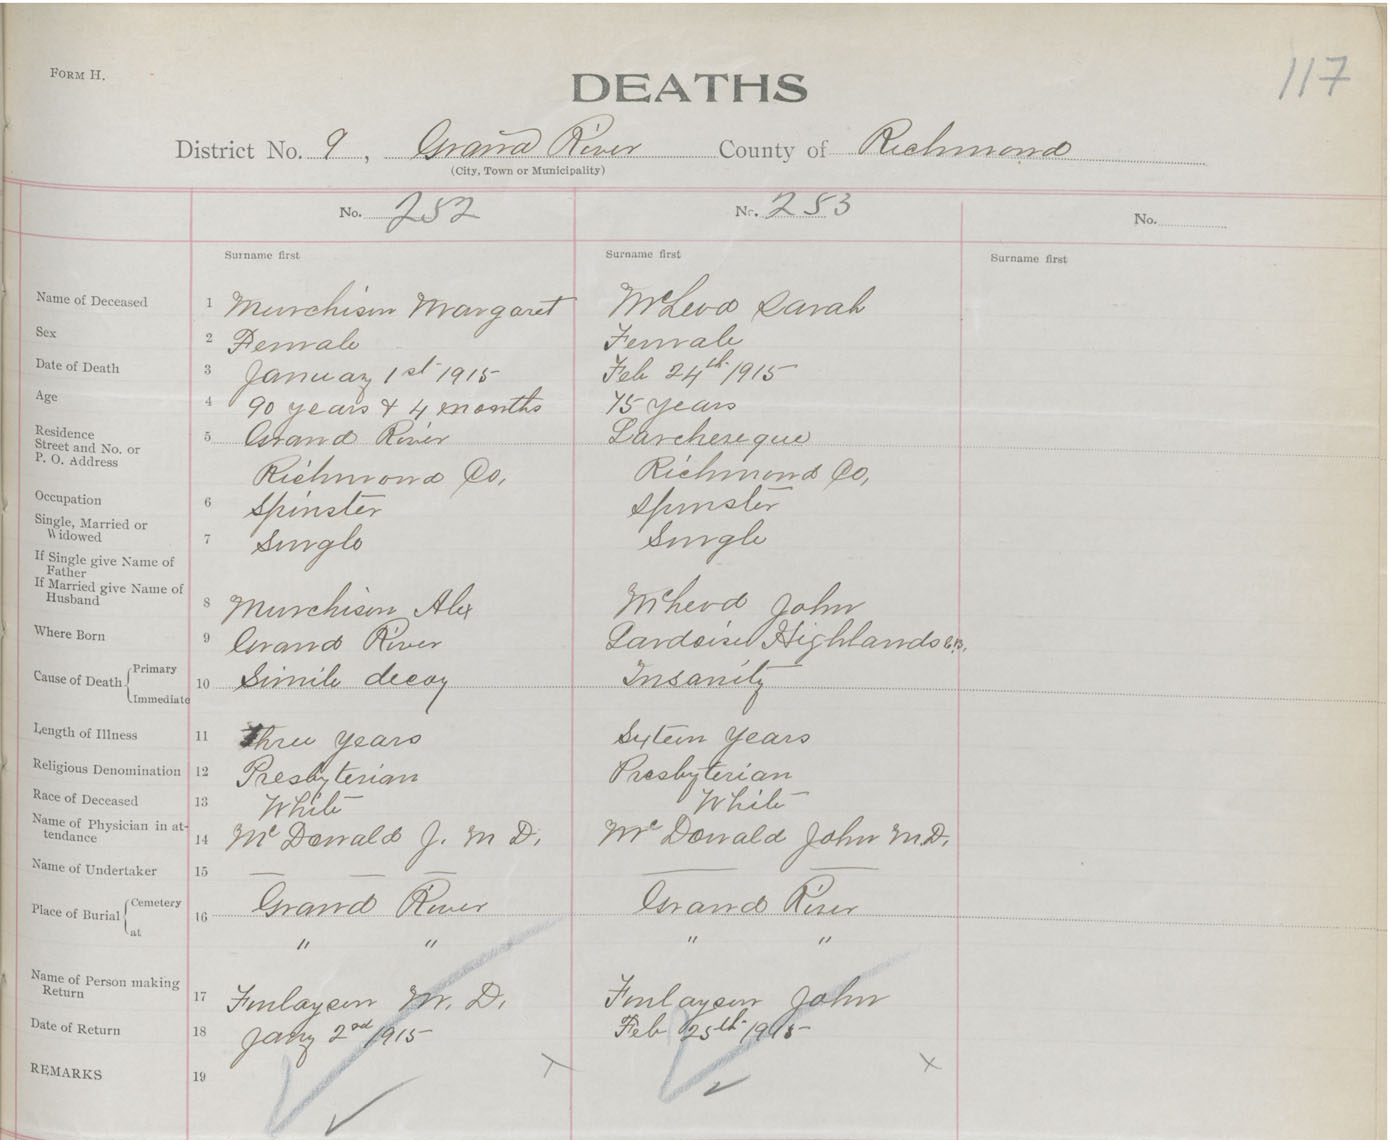 FORM H.
117
DEATHS
District No. 9, Grand River County of Richmond
(City, Town or Municipality)
No. 252 No. 253 No.
Surname first Surname first Surname first
Name of Deceased 1 Murchison Margaret McLeod Sarah
Sex 2 Female Female
Date of Death 3 January 1st 1915 Feb 24th 1915
Age 4 90 years & 4 months 75 years
Residence
Street and No. or 5 Grand River Larcheseque
P. O. Address
Richmond Co, Richmond Co,
Occupation 6 Spinster Spinster
Single, Married or
Widowed 7 Single Single
If Single give Name of
Father
If Married give Name of
Husband 8 Murchison Alex McLeod John
Where Born 9 Grand River Lardoise Highlands C.B.
Cause of Death { Primary
Immediate 10 Simile decay Insanity
Length of Illness 11 Three years Sixteen years
Religious Denomination 12 Presbyterian Presbyterian
Race of Deceased 13 White White
Name of Physician in at-
tendance 14 McDonald J. M D. McDonald John M.D.
Name of Undertaker 15 — — — —
Place of Burial { Cemetery 16 Grand River Grand River
at " " " "
Name of Person making
Return 17 Finlayson M. D. Finlayson John
Date of Return 18 Jany 2nd 1915 Feb 25th 1915
REMARKS 19